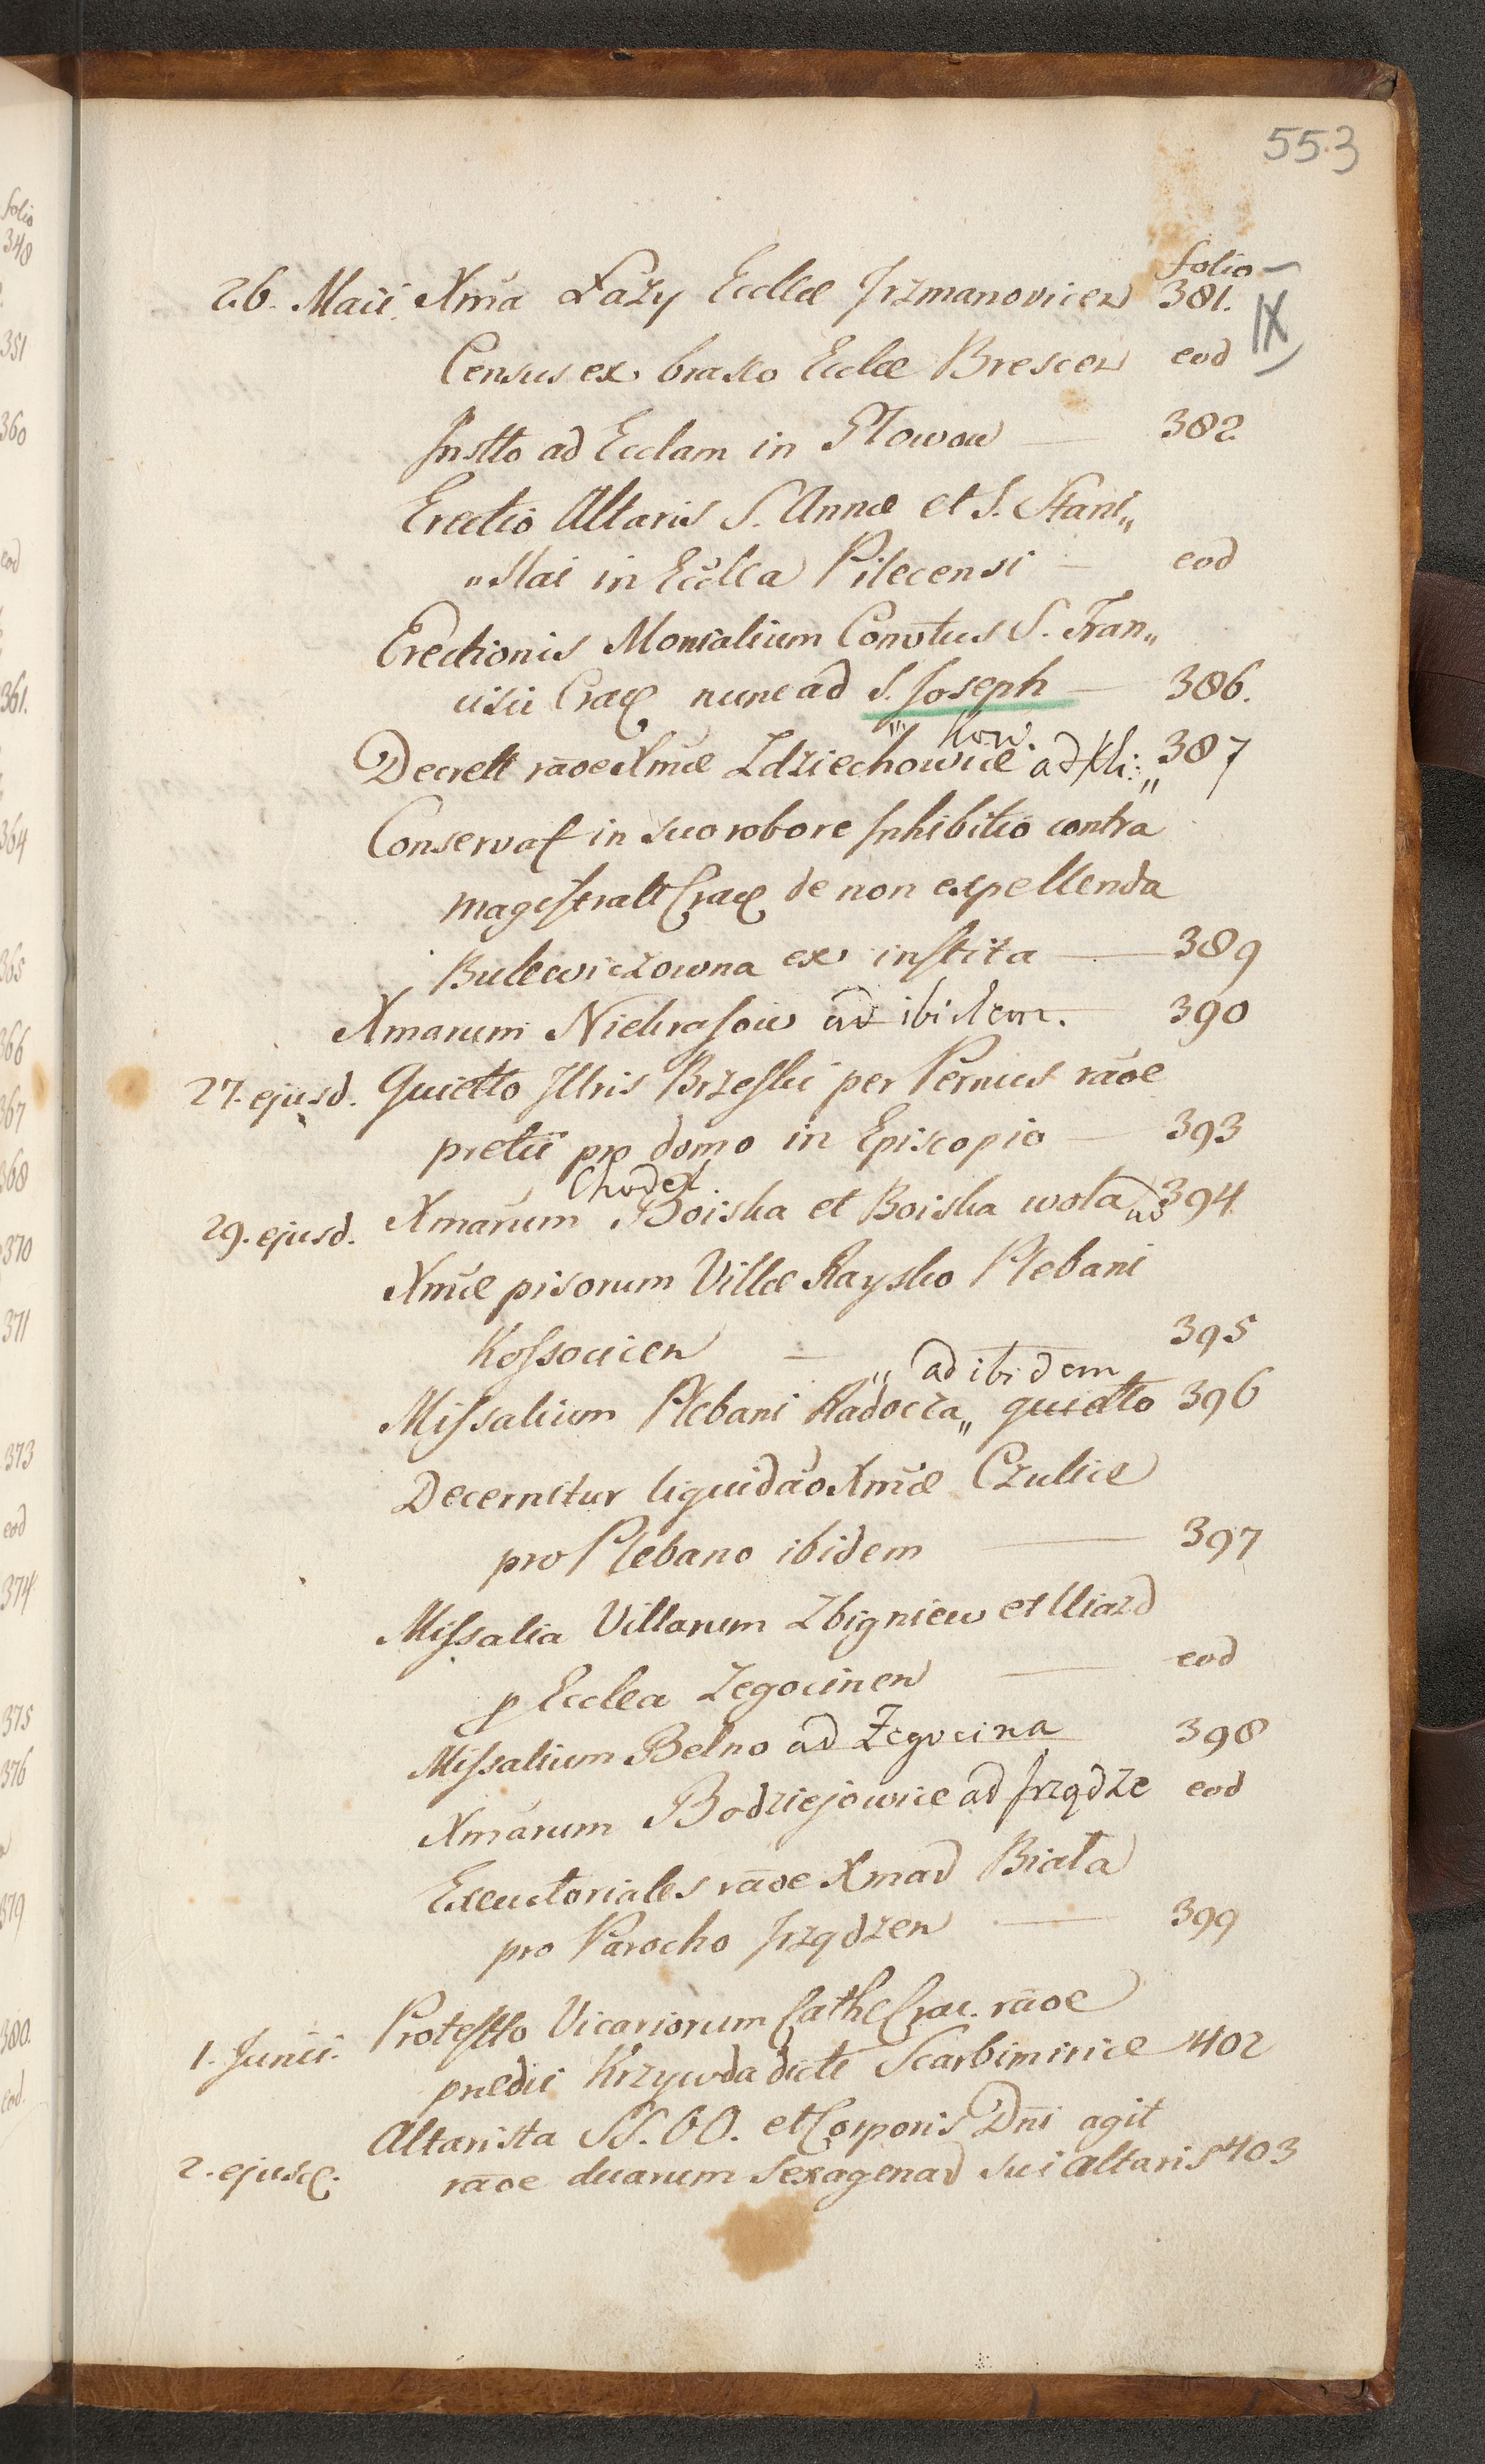 553
folio
26. Maii. Xma Łazy Ecclæ Jrzmanovicen 381.
IX
Census ex braseo Ecclæ Brescen eod
Instto ad Ecclam in Płowow — 382
Erectio Altaris S. Annæ et S. Stani„
„slai in Ecclea Pilecensi — eod
Erectionis Monialium Convtus S. Fran„
cisci Crac nunc ad S. Joseph — 386.
Decrett rãoe Xmæ Zdziechowice ad Kli:„ 387
„how.
Conservat in suo robore Inhibitio contra
magistratt Crac de non expellenda
Bulewiczowna ex instita — 389
Xmarum Niekrasow ad ibidem. 390
27. ejusd. Quietto Illris Brzeski per Pernus rãoe
pretii pro domo in Episcopio — 393
Chodel
29. ejusd. Xmarum Boiska et Boiska wola ad 394
Xmæ pisorum Villæ Raysko Plebani
Kossovicen — 395
„ ad ibidem
Missalium Plebani Radocza„ quietto 396
Decernitur liquidão Xmæ Czulice
pro Plebano ibidem — 397
Missalia Villarum Zbigniew et Uiazd
p Ecclea Zegocinen — eod
Missalium Belno ad Żegocina 398
Xmarum Bodziejowice ad Jrządze eod
Executoriales rãoe Xmar Biała
pro Parocho Jrządzen — 399
1. Junii. Protestto Vicariorum Cath Crac. rãoe
prædii Krzywda dicti Scarbimiriæ 402
2. ejusd. Altarista SS. OO. et Corporis Dñi agit
rãoe duarum sexagenar sui altaris 403